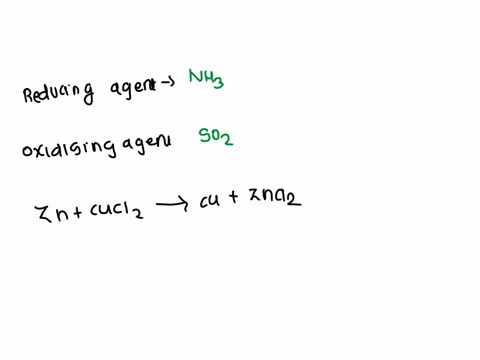 Reducing agent → NH3
oxidising agent SO2
Zn + CuCl2 → Cu + ZnCl2